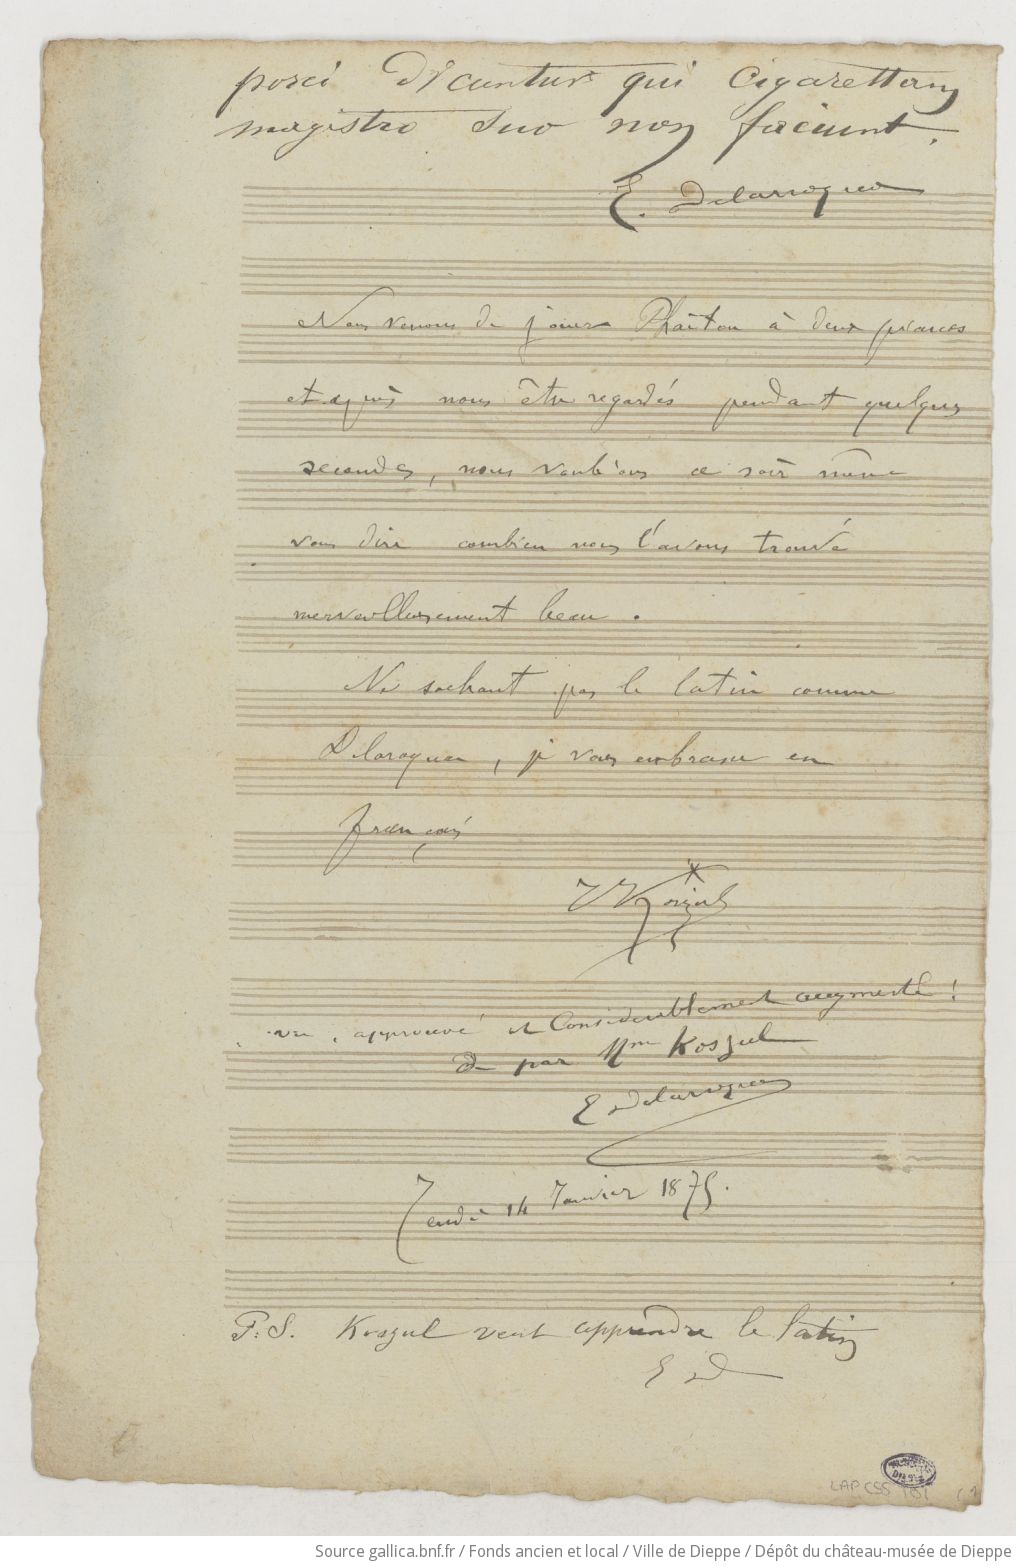 porci dicuntur qui Cigarettam
magistro suo non faciunt.
E. Delarroqua
Nous venons de jouer Phaëton à deux pianos
et après nous être regardés pendant quelques
secondes, nous voulions ce soir même
vous dire combien nous l'avons trouvé
merveilleusement beau.
Ne sachant pas le latin comme
Delaroqua, je vous embrasse en
français
Koszul
vu, approuvé et Considerablement augmenté!
de par Mme Koszul
E Delarroqua
Jeudi 14 Janvier 1875.
P.S. Koszul veut apprendre le latin
E D
LAP CSS 101
Source gallica.bnf.fr / Fonds ancien et local / Ville de Dieppe / Dépôt du château-musée de Dieppe